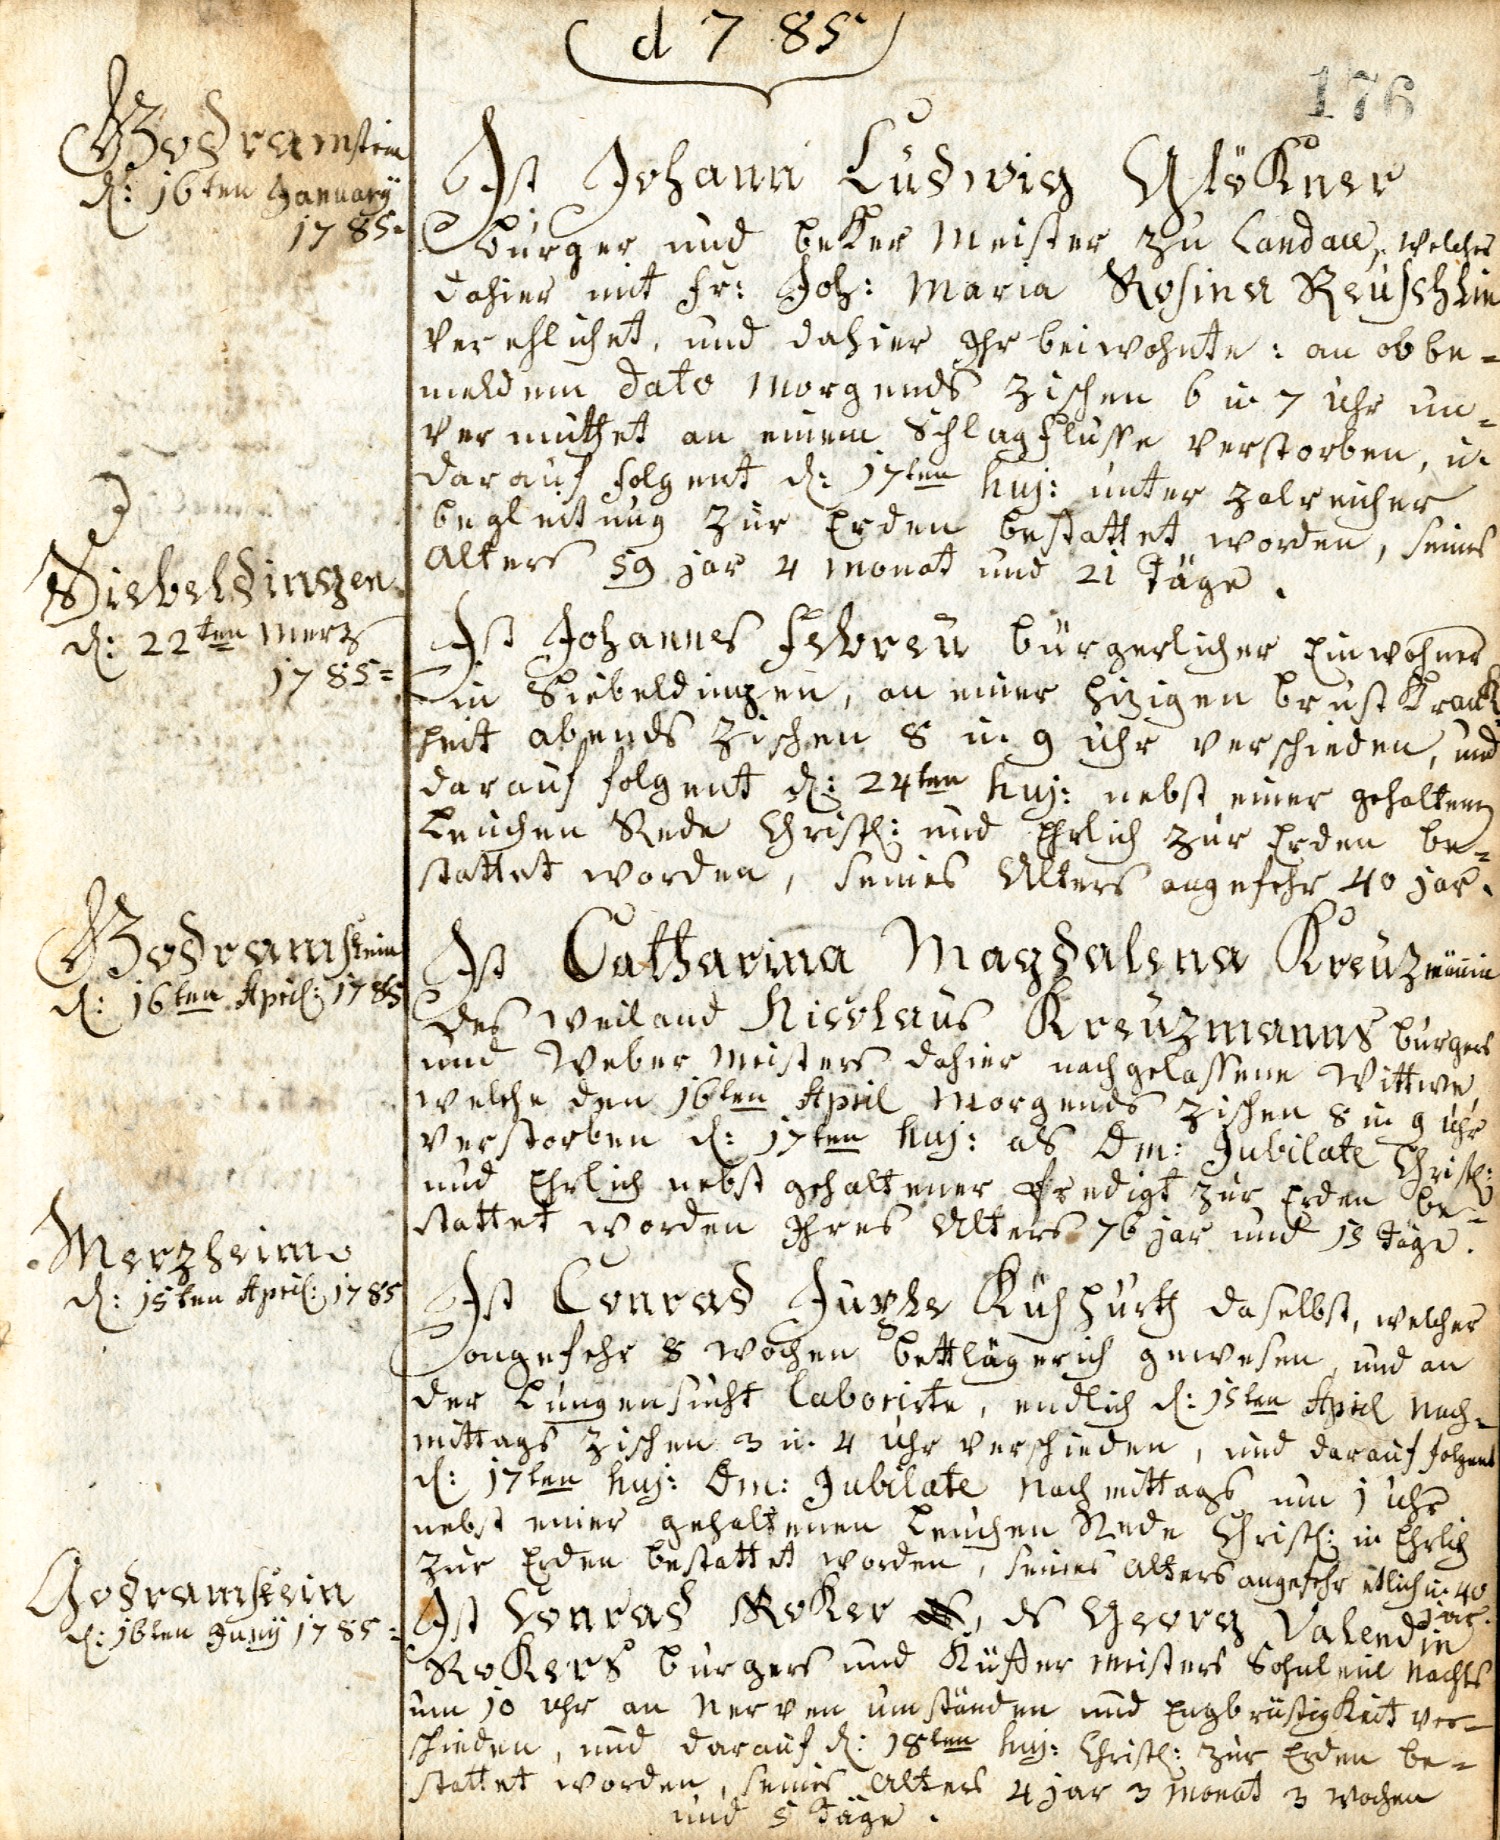 d 7 85
176
Godramstein
d: 16ten January
1785.
Ist Johann Ludwig Glökner
burger und beker Meister zu Landau, welcher
dahier mit Fr: Joh: Maria Rosina Reuschlin
verehlichet, und dahier Ihr beiwohnte: an obbe=
meldem Dato Morgends zischen 6 u. 7 Uhr un=
vermuthet an einem Schlagflusse verstorben, u.
darauf folgent d: 17ten huj: unter zalreicher
begleitung zur Erden bestattet worden, seines
Alters 59 jar 4 Monat und 21 Täge.
Siebeldingen
d: 22ten Merz
1785=
Ist Johannes Febreu bürgerlicher Einwohner
in Siebeldingen, an einer hizigen brust Krank
heit abends zischen 8 u. 9 Uhr verschieden, und
darauf folgent d: 24ten huj: nebst einer gehaltenen
Leuchen Rede Christl: und Ehrlich zur Erden be=
stattet worden, seines Alters angefehr 40 jar.
Godramstein
d: 16ten April: 1785
Ist Catharina Magdalena Kreuzmännin
des weiland Nicolaus Kreuzmanns burgers
und Weber Meisters dahier nachgelassene Wittwe,
welche den 16ten April Morgends zischen 8 u. 9 Uhr
verstorben d: 17ten huj: als Dm: Jubilate Christl:
und Ehrlich nebst gehaltener Predigt zur Erden be=
stattet worden Ihres Alters 76 jar und 13 Täge.
Merzheim
d: 15ten April: 1785
Ist Conrad Jungle Kuhhürth daselbst, welcher
ongefehr 8 wochen bettlägerich gewesen, und an
der Lungensucht laborirte, endlich d: 15ten April Nach=
mittags zischen 3 u. 4 Uhr verschieden, und darauf folgent
d: 17ten huj: Dm: Jubilate Nachmittags um 1 Uhr
nebst einer gehaltenen Leuchen Rede Christl: u Ehrlich
zur Erden bestattet worden, seines Alters angefehr etlich u. 40
jar.
Godramstein
d: 16ten Juny 1785=
Ist Conrad Roker, ds Georg Valendin
Rokers burgers und Küffer Meisters Söhnlein Nachts
um 10 Uhr an Nerven umständen und Engbrüstigkeit ver=
schieden, und darauf d: 18ten huj: Christl: zur Erden be=
stattet worden, seines Alters 4 jar 3 Monat 3 wochen
und 5 Täge.